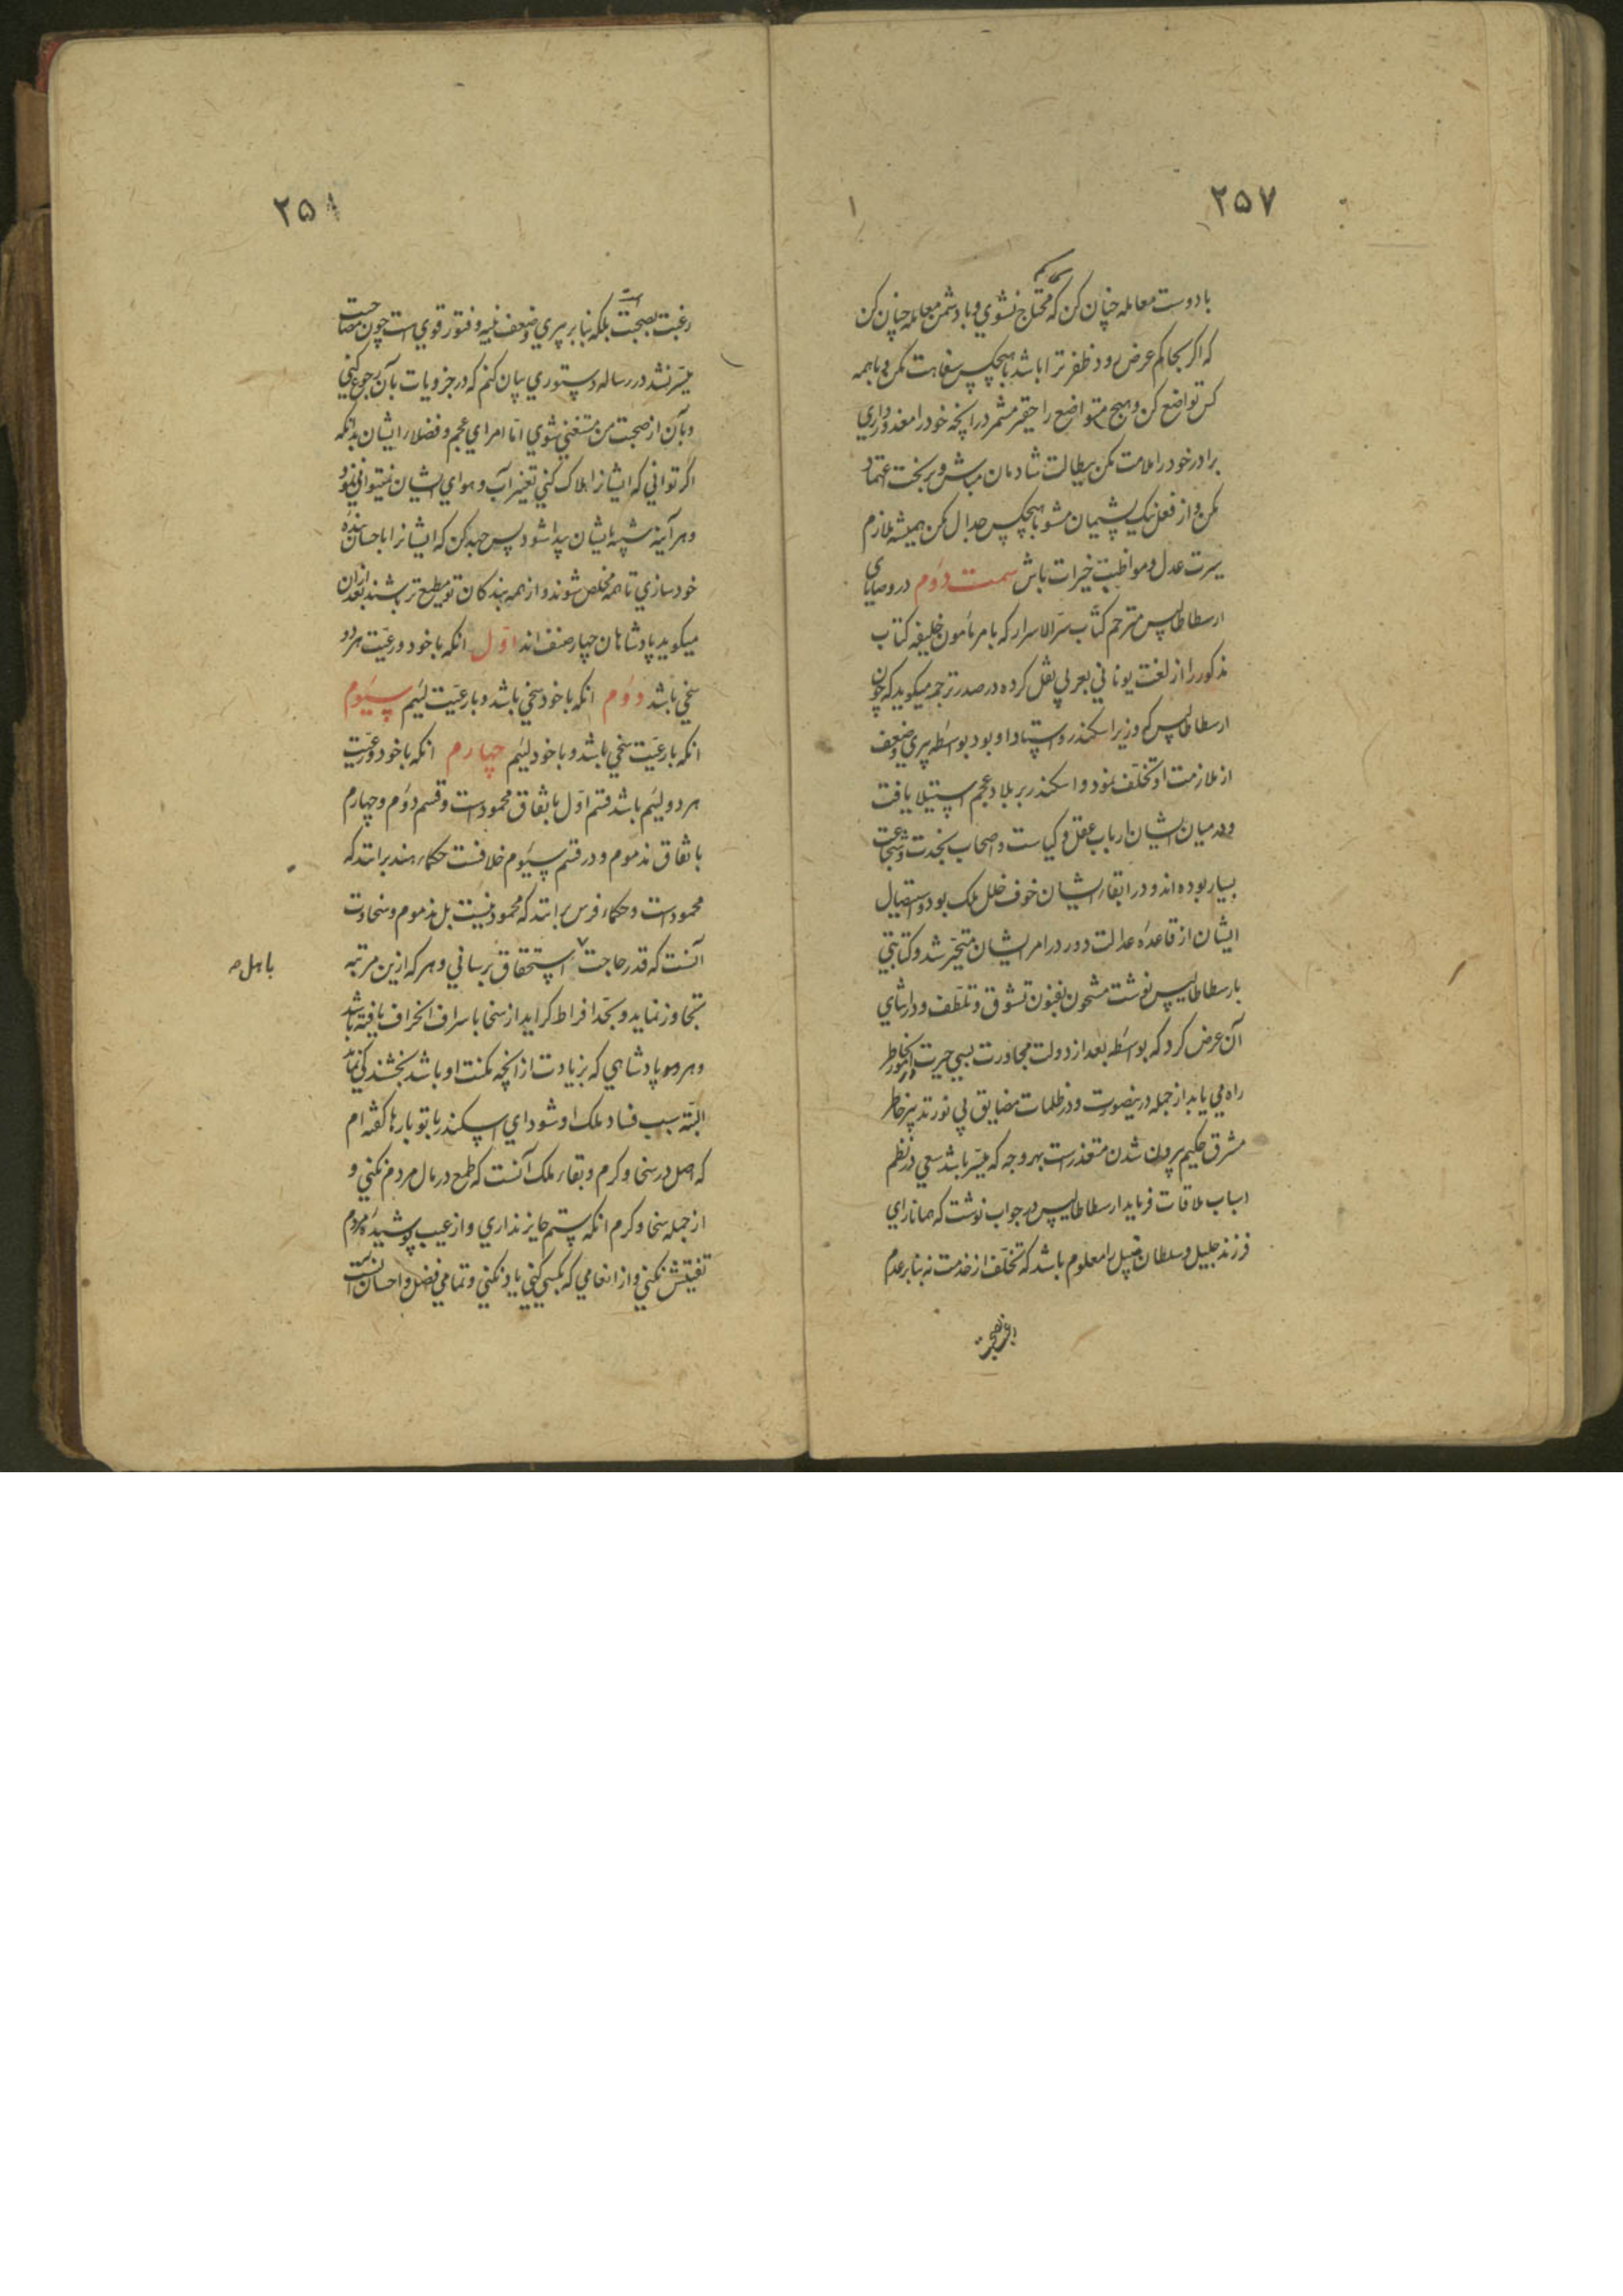 ۲۵۷
با دوست معامله چنان کن که بحاکم محتاج نشوي و با دشمن معامله چنان کن
که اکر بحاکم عرض رود ظفر ترا باشد با هیچکس سفاهت مکن و با همه
کس تواضع کن و هیچ متواضع را حقیر مشمر در انچه خود را معذور داري
برادر خود را ملامت مکن ببطالت شادمان مباش و بر بخت اعتماد
مکن و از فعل نیک پشیمان مشو با هیچکس جدال مکن همیشه ملازم
سیرت عدل و مواظبت خیرات باش سمت دوم در وصایای
ارسطاطالیس مترجم کتاب سر الاسرار که بامر مأمون خلیفه کتاب
مذکور را از لغت یوناني بعربي نقل کرده در صدر ترجمه میکوید که چون
ارسطاطالیس که وزیر اسکندر و استاد او بود بواسطه پیري و ضعف
از ملازمت او تخلف نمود و اسکندر بر بلاد عجم استیلا یافت
و در میان ایشان ارباب عقل و کیاست و اصحاب نجدت و شجاعت
بسیار بوده اند و در ابقاء ایشان خوف خلل ملک بود و استیصال
ایشان از قاعدهٔ عدالت دور در امر ایشان متحیر شد و کتابتي
بارسطاطالیس نوشت مشحون بفنون تشوق و تلطف و در اثناي
آن عرض کرد که بواسطه بعد از دولت مجاورت بسي حیرت در امور بخاطر
راه مي یابد از جمله درینصورت و در ظلمات مضایق بي نور تدبیر خاطر
مشرق حکیم بیرون شدن متعذرست بهر وجه که میسر باشد سعي در نظم
اسباب ملاقات فرماید ارسطاطالیس در جواب نوشت که همانا راي
فرزند جلیل و سلطان نبیل را معلوم باشد که تخلف از خدمت نه بنا بر عدم
رغبت بصحبت
۲۵۸
رغبت بصحبت است بلکه بنا بر پیري و ضعف بنیه و فتور قوي است چون مصاحبت
میسر نشد در رساله دستوري بیان کنم که در جزویات بآن رجوع کني
و بآن از صحبت من مستغني شوي اما امراي عجم و فضلاء ایشان بدانکه
اگر تواني که ایشانرا هلاک کني تغییر آب و هواي ایشان نمیتواني نمود
و هر آینه شبیه بایشان پیدا شود پس جهد کن که ایشانرا باحسان بندهٔ
خود سازي تا همه مخلص شوند و از همه بندکان تو مطیع تر باشند بعد از آن
میکوید پادشاهان چهار صنف اند اول انکه با خود و رعیت هر دو
سخي باشد دوم انکه با خود سخي باشد و با رعیت لئیم سیوم
انکه با رعیت سخي باشد و با خود لئیم چهارم انکه با خود و رعیت
هر دو لئیم باشد قسم اول باتفاق محمودست و قسم دوم و چهارم
باتفاق مذموم و در قسم سیوم خلافست حکماء هند برانند که
محمودست و حکماء فرس برانند که محمود نیست بل مذموم و سخاوت
آنست که قدر حاجت استحقاق برساني و هر که ازین مرتبه
باهل صح
تجاوز نماید و بحد افراط کراید از سخا باسراف انحراف یافته باشد
و هر پادشاهي که بزیادت از انچه مکنت او باشد بخشندکي نماید
البته سبب فساد ملک او شود اي اسکندر با تو بارها کفته ام
که اصل در سخا و کرم و بقاء ملک آنست که طمع در مال مردم نکني و
از جمله سخا و کرم انکه ستم جایز نداري و از عیب پوشیدهٔ مردم
تفتیش نکني و از انعامي که بکسي کني یاد نکني و تمامي فضل و احسان آنست